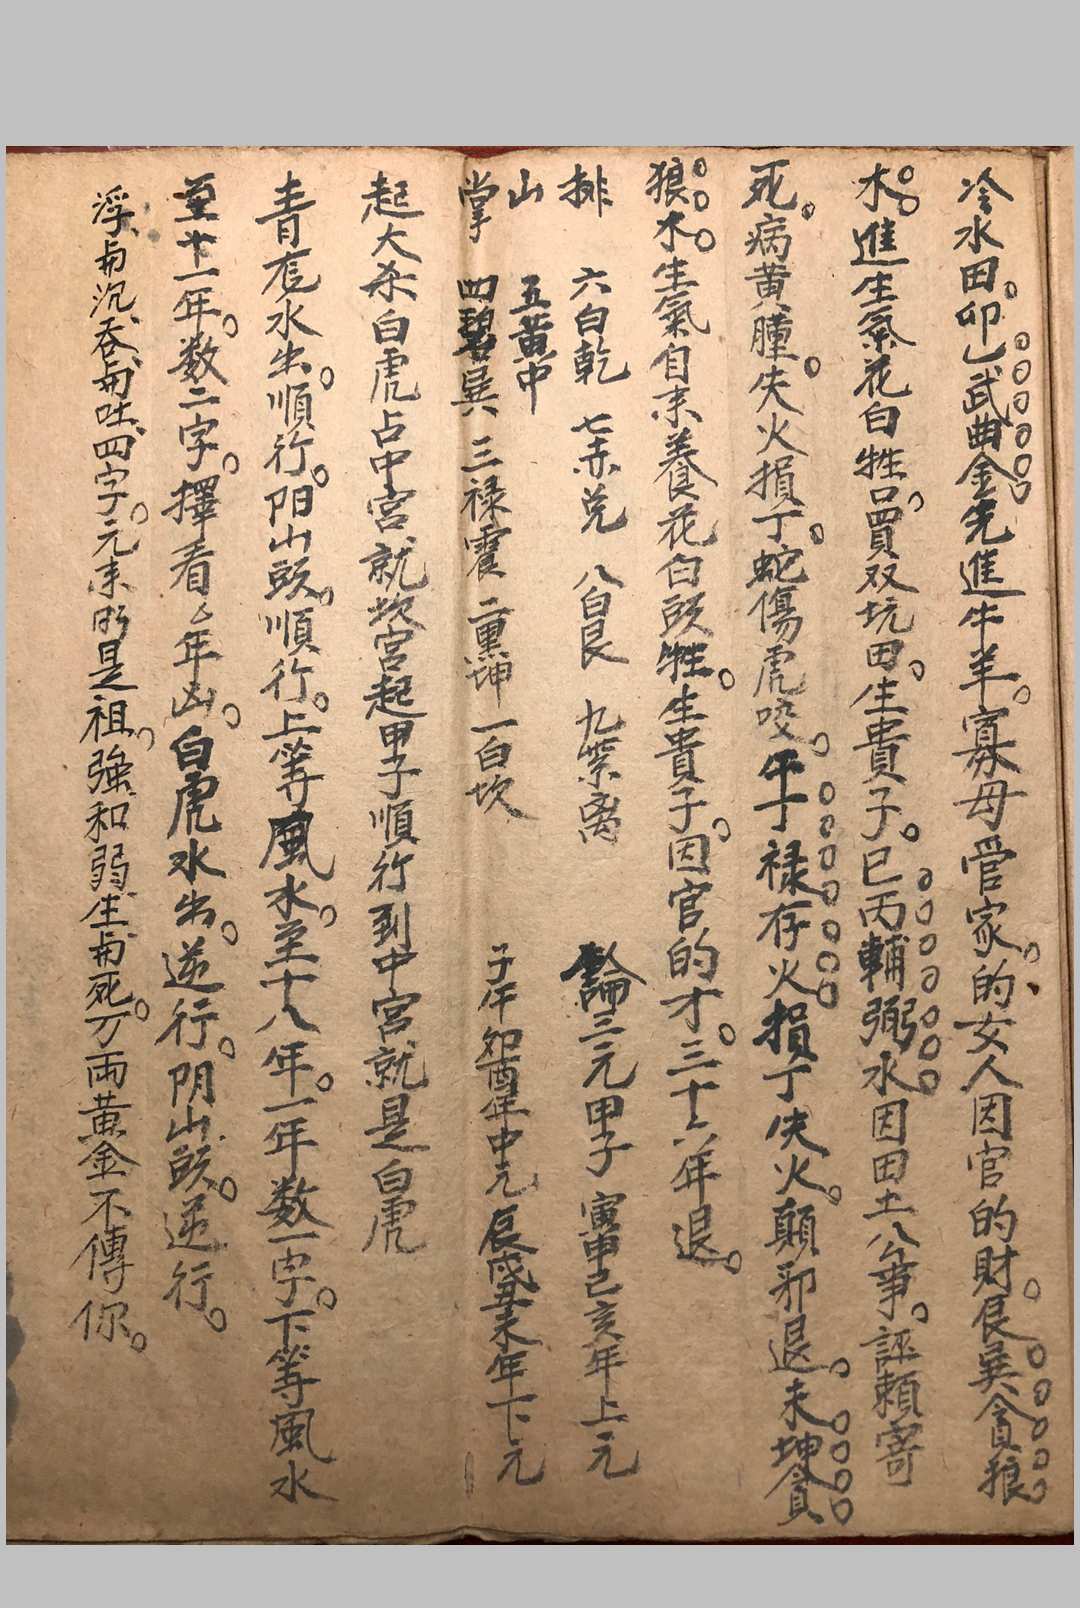 冷水田。卯乚武曲金先進牛羊。寡母管家。的女人因官的財。艮巽貪狼
木。進生氣花白牲。買双坑田。生貴子。巳丙輔弼水因田土八爭。誣賴寄
死。病黄腫。失火損丁。蛇傷虎咬。午丁禄存火損丁失火。顛邪退。未坤貪
狼木。生氣自來養花白頭牲。生貴子。因官的才。三十六年退。
排 六白乾 七赤兑 八白艮 九紫离 論三元甲子 寅申己亥年上元
山 五黄中
掌 四碧巽 三禄震 二黑坤 一白坎 子午卯酉年中元 辰戌丑未年下元
起大杀白虎占中宮就坎宮起甲子順行到中宮就是白虎
青龙水出順行。阳山頭。順行。上等風水。至十八年。一年数一字。下等風水
至十一年。数二字。擇看么年凶。白虎水出。逆行。阴山頭。逆行。
浮与沉、吞与吐、四字。元來所是祖。強和弱、生与死。万兩黄金不傳你。